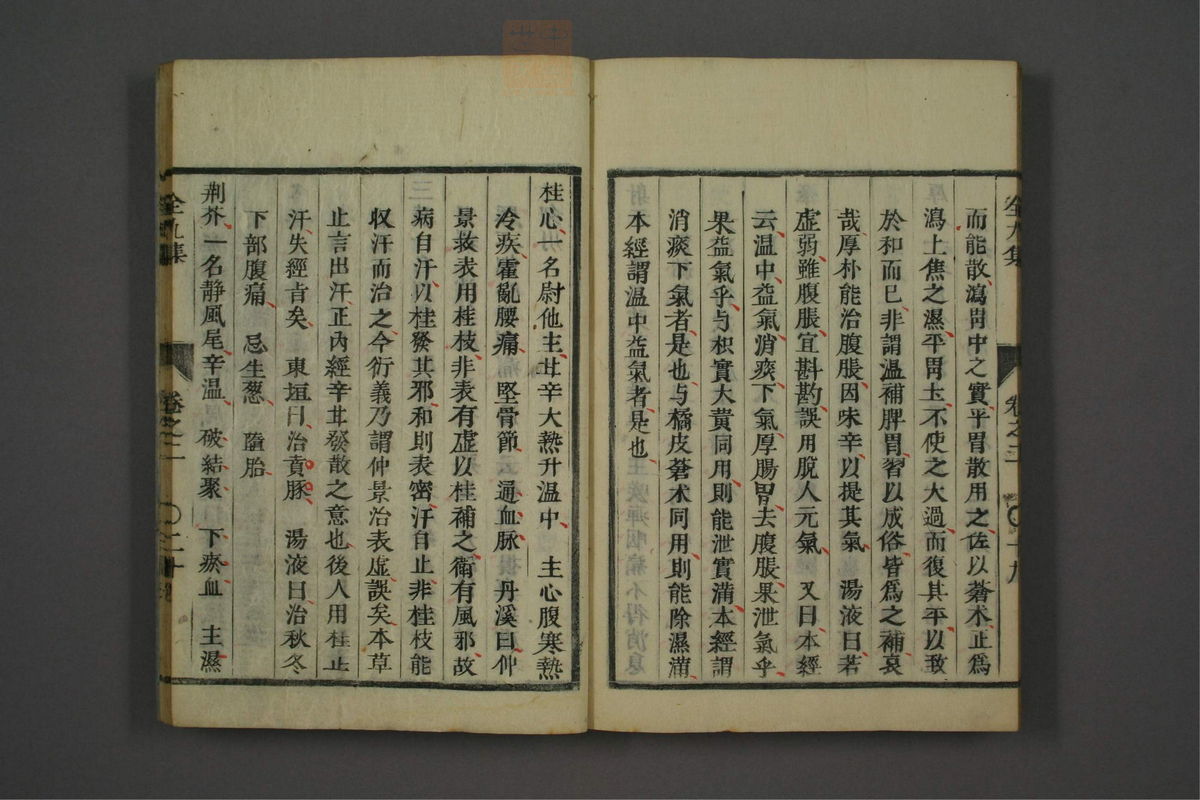 而能散瀉胃中之實平胃散用之佐以蒼朮止爲
瀉上焦之濕平胃土不使之大過而復其平以致
於和而已非謂温補脾胃習以成俗皆爲之補哀
哉厚朴能治腹脹因味辛以提其氣　湯液曰若
虚弱雖腹脹宜斟酌誤用脱人元氣　又曰本經
云温中益氣消痰下氣厚腸胃去腹脹果泄氣乎
果益氣乎与枳實大黄同用則能泄實滿本經謂
消痰下氣者是也与橘皮蒼术同用則能除濕滿
本經謂温中益氣者是也
桂心一名尉他主甘辛大熱升温中　主心腹寒熱
冷疾霍亂腰痛　堅骨節　通血脉　丹溪曰仲
景救表用桂枝非表有虚以桂補之衛有風邪故
病自汗以桂發其邪和則表密汗自止非桂枝能
収汗而治之今衍義乃謂仲景治表虚誤矣本草
止言出汗正内經辛甘發散之意也後人用桂止
汗失經旨矣　東垣曰治賁豚　湯液曰治秋冬
下部腹痛　忌生葱　墮胎
荆芥一名静風尾辛温　破結聚　下瘀血　主濕
全九集
卷之二
〇十九
全九集
卷之二
〇二十